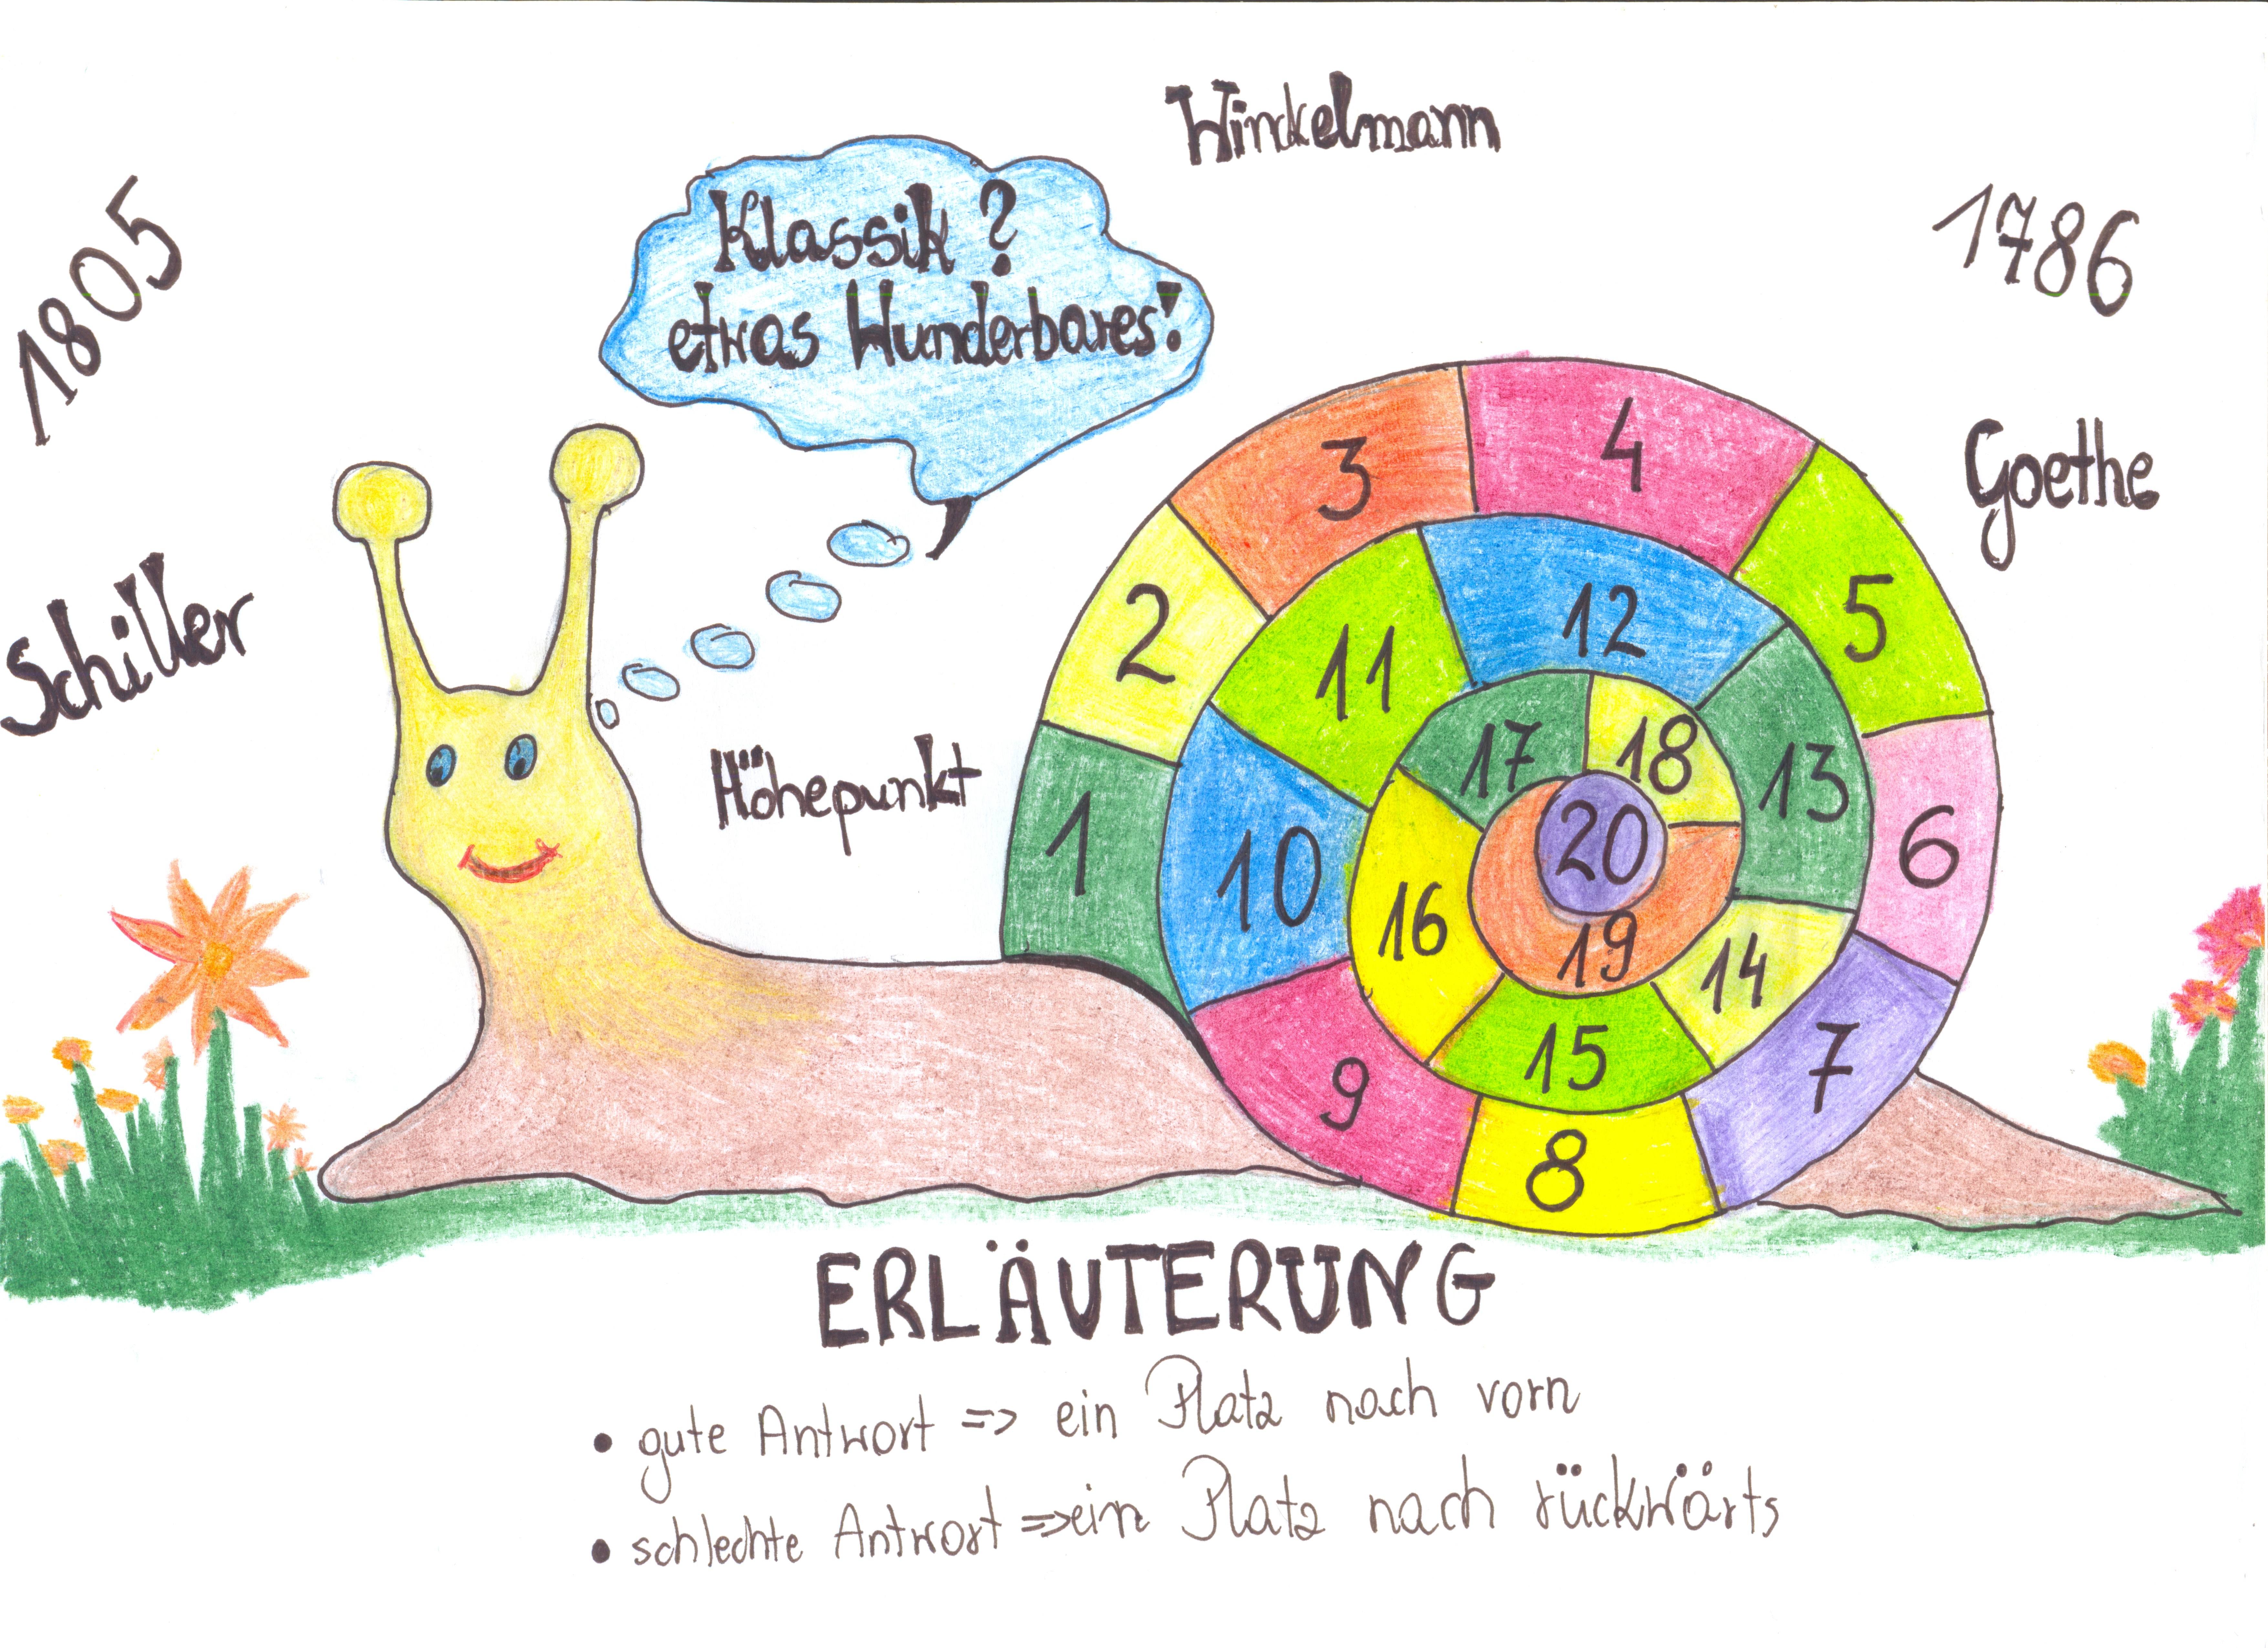 Winckelmann
1805
1786
Klassik?
etwas Wunderbares!
Goethe
Schiller
Höhepunkt
1
2
3
4
5
6
7
8
9
10
11
12
13
14
15
16
17
18
19
20
ERLÄUTERUNG
• gute Antwort => ein Platz nach vorn
• schlechte Antwort => ein Platz nach rückwärts